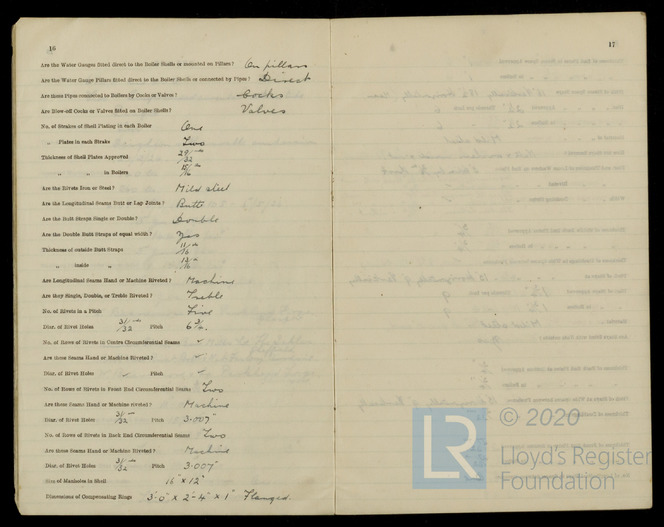 16
Are the Water Gauges fitted direct to the Boiler Shells or mounted on Pillars? On pillars
Are the Water Gauge Pillars fitted direct to the Boiler Shells or connected by Pipes? Direct
Are these Pipes connected to Boilers by Cocks or Valves? Cocks
Are Blow-off Cocks or Valves fitted on Boiler Shells? Valves
No. of Strakes of Shell Plating in each Boiler One
„ Plates in each Strake Two
Thickness of Shell Plates Approved 29/32
„ „ in Boilers
Are the Rivets Iron or Steel? Mild steel
Are the Longitudinal Seams Butt or Lap Joints? Butt
Are the Butt Straps Single or Double? Double
Are the Double Butt Straps of equal width? Yes
Thickness of outside Butt Straps 11/16
„ inside „ 13/16
Are Longitudinal Seams Hand or Machine Riveted? Machine
Are they Single, Double, or Treble Riveted? Treble
No. of Rivets in a Pitch Five
Diar. of Rivet Holes 31/32 Pitch
No. of Rows of Rivets in Centre Circumferential Seams ✓
Are these Seams Hand or Machine Riveted? ✓
Diar. of Rivet Holes ✓ Pitch ✓
No. of Rows of Rivets in Front End Circumferential Seams Two
Are these Seams Hand or Machine riveted? Machine
Diar. of Rivet Holes 31/32 Pitch 3.007"
No. of Rows of Rivets in Back End Circumferential Seams Two
Are these Seams Hand or Machine Riveted? Machine
Diar. of Rivet Holes 31/32 Pitch 3.007"
Size of Manholes in Shell 16" x 12"
Dimensions of Compensating Rings 3'-0" x 2'-4" x 1" Flanged.
17
LR © 2020
Lloyd's Register
Foundation